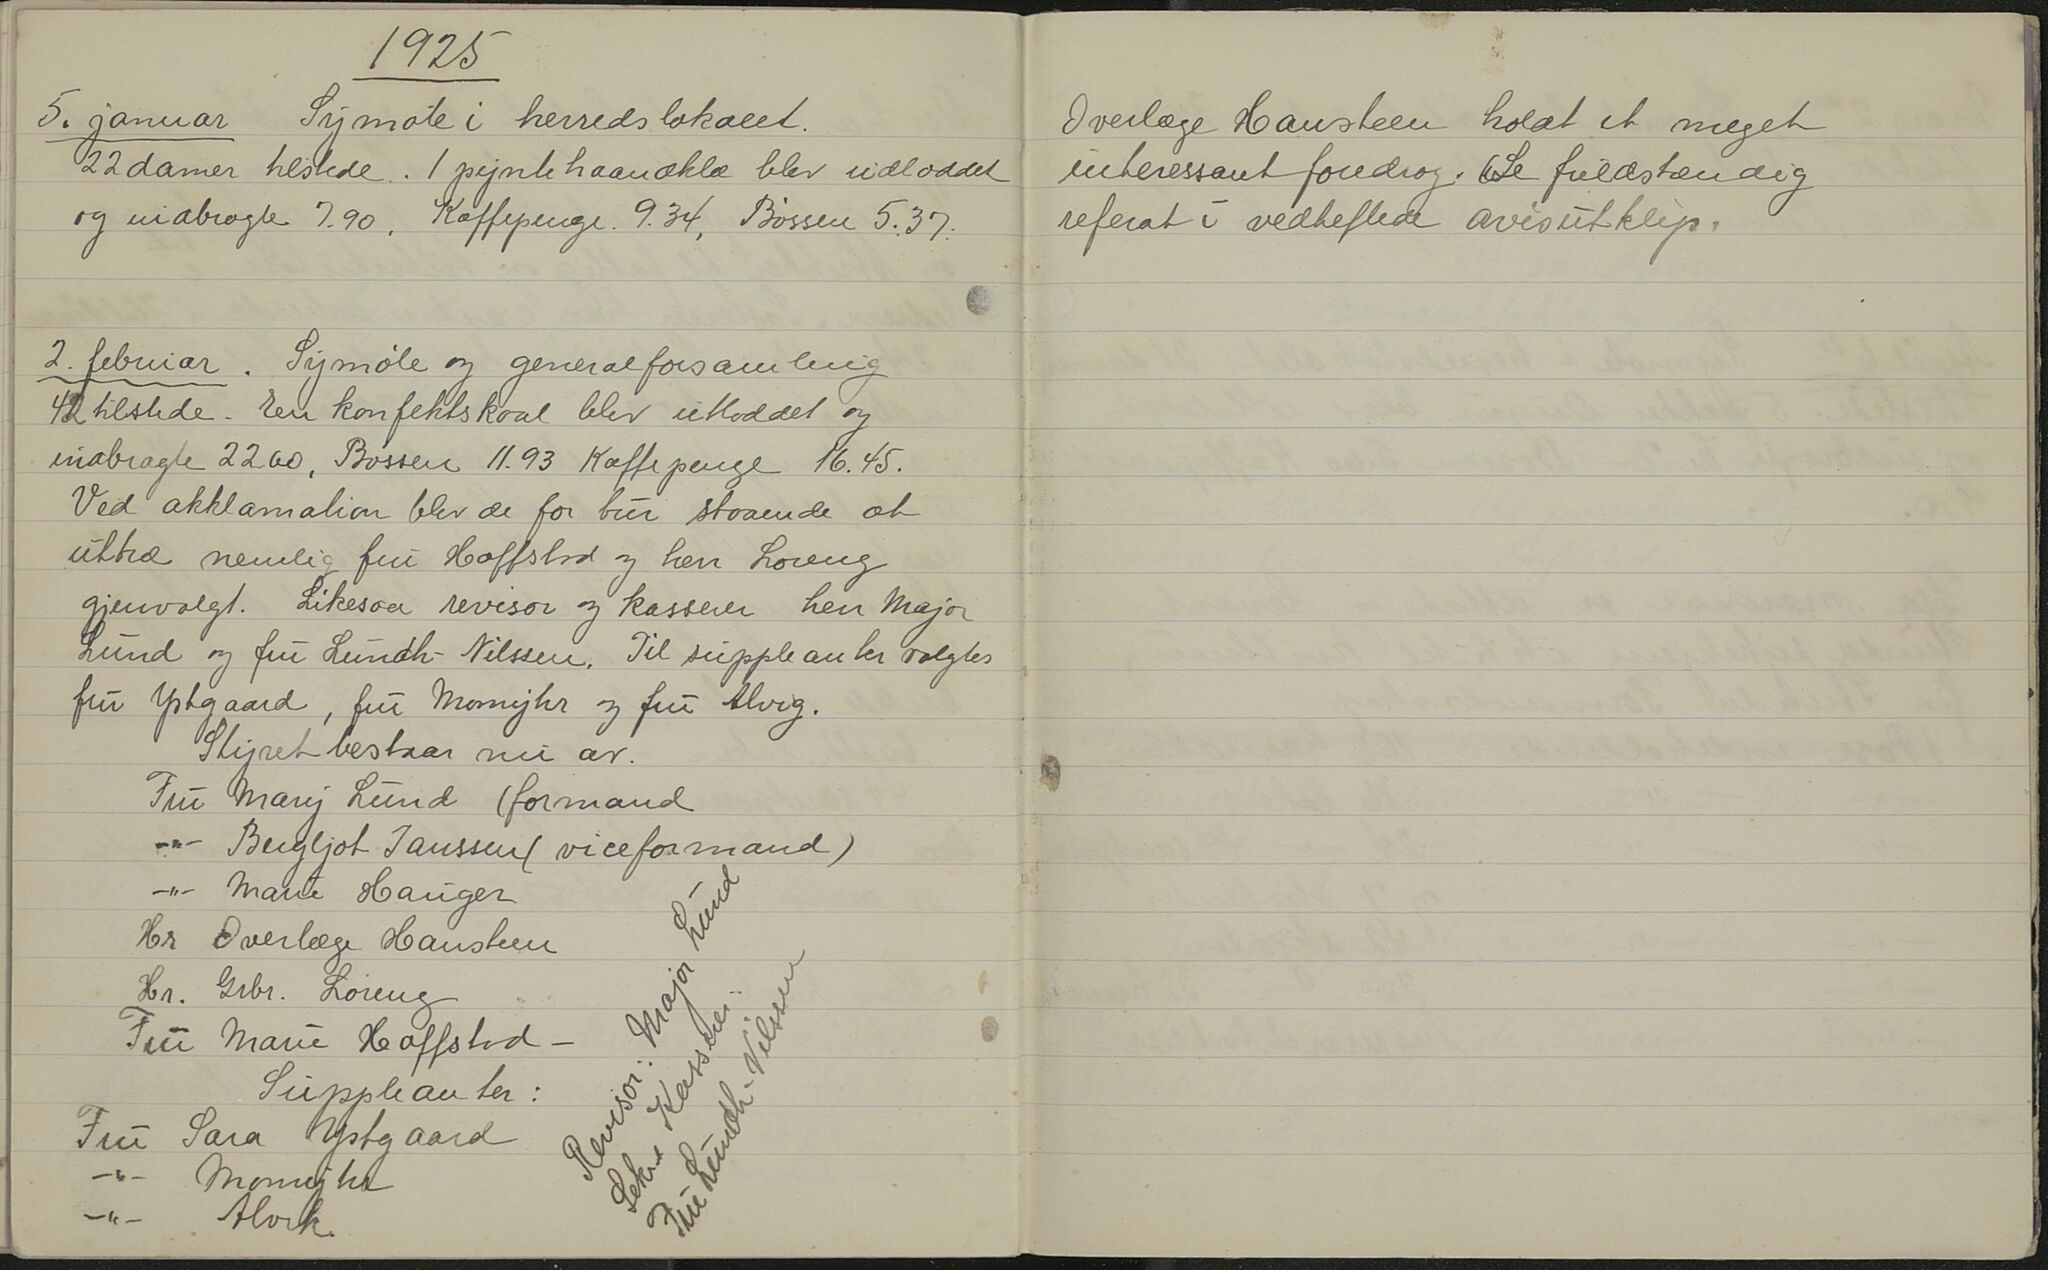 1925
5. januar Symøte i herredslokalet.
22 damer tilstede. 1 pyntehaandklæ blev udloddet
og indbragte 7.90, Kaffepenge. 9.34, Bøssen 5.37.
2. februar. Symøte og generalforsamling
42 tilstede. En konfektskaal blev utloddet og
indbragte 22.00, Bøssen 11.93 Kaffepenge 16.45.
Ved akklamation blev de for tur staaende at
uttræ nemlig fru Hoffstad og herr Loreng
gjenvalgt. Likesaa revisor og kasserer herr Major
Lund og fru Lundh-Nilssen. Til suppleanter valgtes
fru Ystgaard, fru Momyhr og fru Alvig.
Styret bestaar nu av.
Fru Mary Lund (formand
-"- Bergljot Janssen (viceformand)
-"- Marie Hauger
Hr Overlæge Hansteen
Hr. Grbr. Loreng
Fru Marie Hoffstad -
Suppleanter:
Fru Sara Ystgaard
-"- Momyhr
-"- Alvik.
Revisor: Major Lund
Sekr Kasserer:
Fru Lundh-Nilssen
Overlæge Hansteen holdt et meget
interessant foredrag. (Se fuldstændig
referat i vedheftede avisutklip.